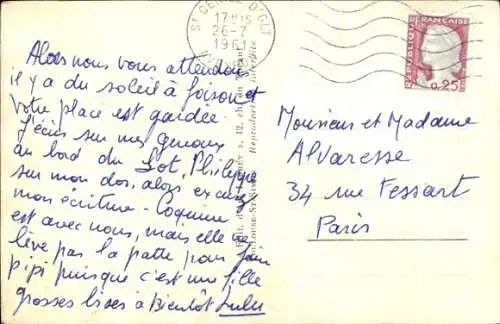 Alors nous vous attendons
il y a du soleil à foison et
votre place est gardée.
J'écris sur mes genoux
au bord du Lot, Philippe
sur mon dos, alors excusez
mon écriture - Coquine
est avec nous, mais elle ne
lève pas la patte pour faire
pipi puisque c'est une fille
grosses bises à Bientôt Lulu
17H15
26-7
1961
REPUBLIQUE FRANÇAISE
0,25
Monsieur et Madame
Alvaresse
34 rue Fessart
Paris